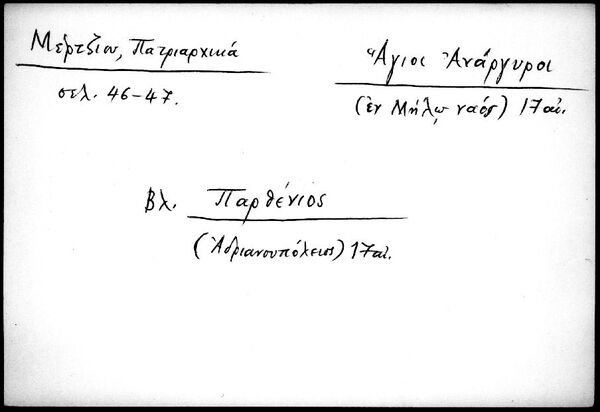 Μέρτζιου, Πατριαρχικά
σελ. 46-47.
Ἅγιοι Ἀνάργυροι
(ἐν Μήλῳ ναός) 17 αἰ.
Βλ. Παρθένιος
(Ἀδριανουπόλεως) 17 αἰ.